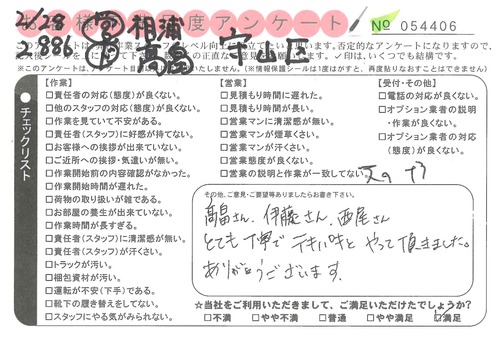 2/28 営 相浦
2886 高畠 守山区
お客様満足度アンケート
No 054406
●チェックリスト
【作業】
□責任者の対応(態度)が良くない。
□他のスタッフの対応(態度)が良くない。
□作業を見ていて不安がある。
□責任者(スタッフ)に好感が持てない。
□お客様への挨拶が出来ていない。
□ご近所への挨拶・気遣いが無い。
□作業開始前の内容確認がなかった。
□作業開始時間が遅れた。
□荷物の取り扱いが雑である。
□お部屋の養生が出来ていない。
□作業時間が長すぎる。
□責任者(スタッフ)に清潔感が無い。
□責任者(スタッフ)が汗くさい。
□トラックが汚い。
□梱包資材が汚い。
□運転が不安(下手)である。
□靴下の履き替えをしてない。
□スタッフにやる気がみられない。
【営業】
□見積もり時間に遅れた。
□見積もり時間が長い。
□営業マンに清潔感が無い。
□営業マンが煙草くさい。
□営業マンが汗くさい。
□営業態度が良くない。
□営業の説明と作業が一致してない。
【受付・その他】
□電話の対応が良くない。
□オプション業者の説明・作業が良くない。
□オプション業者の対応(態度)が良くない。
その他、ご意見・ご要望等ありましたらお書き下さい。
高畠さん、伊藤さん、西尾さん
とても丁寧でテキパキとやって頂きました。
ありがとうございます。
☆当社をご利用いただきまして、ご満足いただけたでしょうか?
□不満 □やや不満 □普通 □やや満足 ☑満足